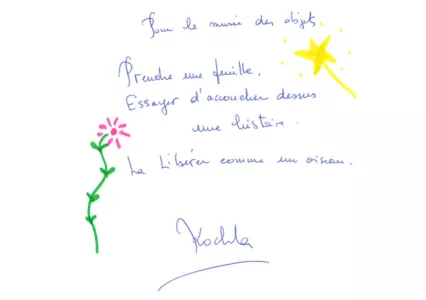 Pour le musée des objets.
Prendre une feuille,
Essayer d'accoucher dessus
une histoire.
La Libérer comme un oiseau.
Kochka